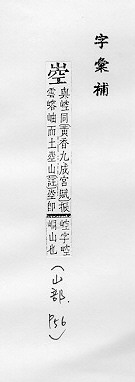 字彙補
崆
與崆同黃香九成宮賦振
雲峆岫而土崆山註崆即
崆字崆
峒山也
(山部.
P56)